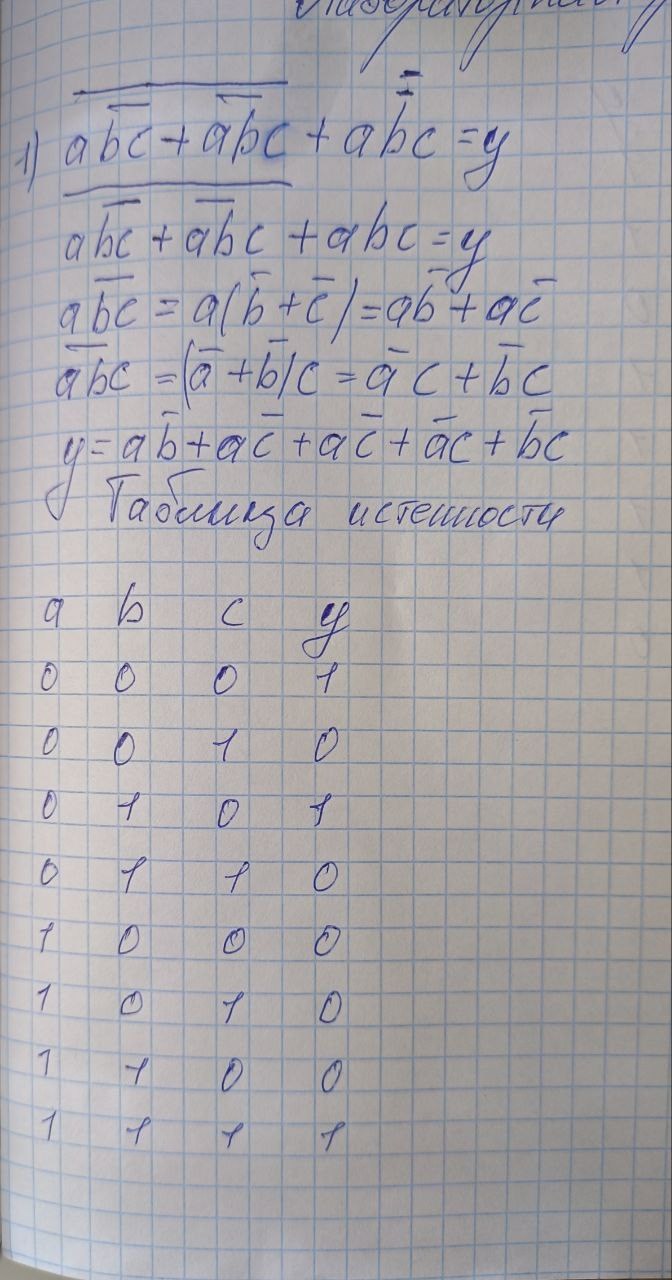 1) a\overline{bc} + \overline{ab}c + a\overline{\overline{b}}c = y
a\overline{bc} + \overline{ab}c + abc = y
a\overline{bc} = a(b̄ + c̄) = ab̄ + ac̄
\overline{ab}c = (ā + b̄)c = āc + b̄c
y = ab̄ + ac̄ + ac̄ + āc + b̄c
Таблица истенности
a b c y
0 0 0 1
0 0 1 0
0 1 0 1
0 1 1 0
1 0 0 0
1 0 1 0
1 1 0 0
1 1 1 1